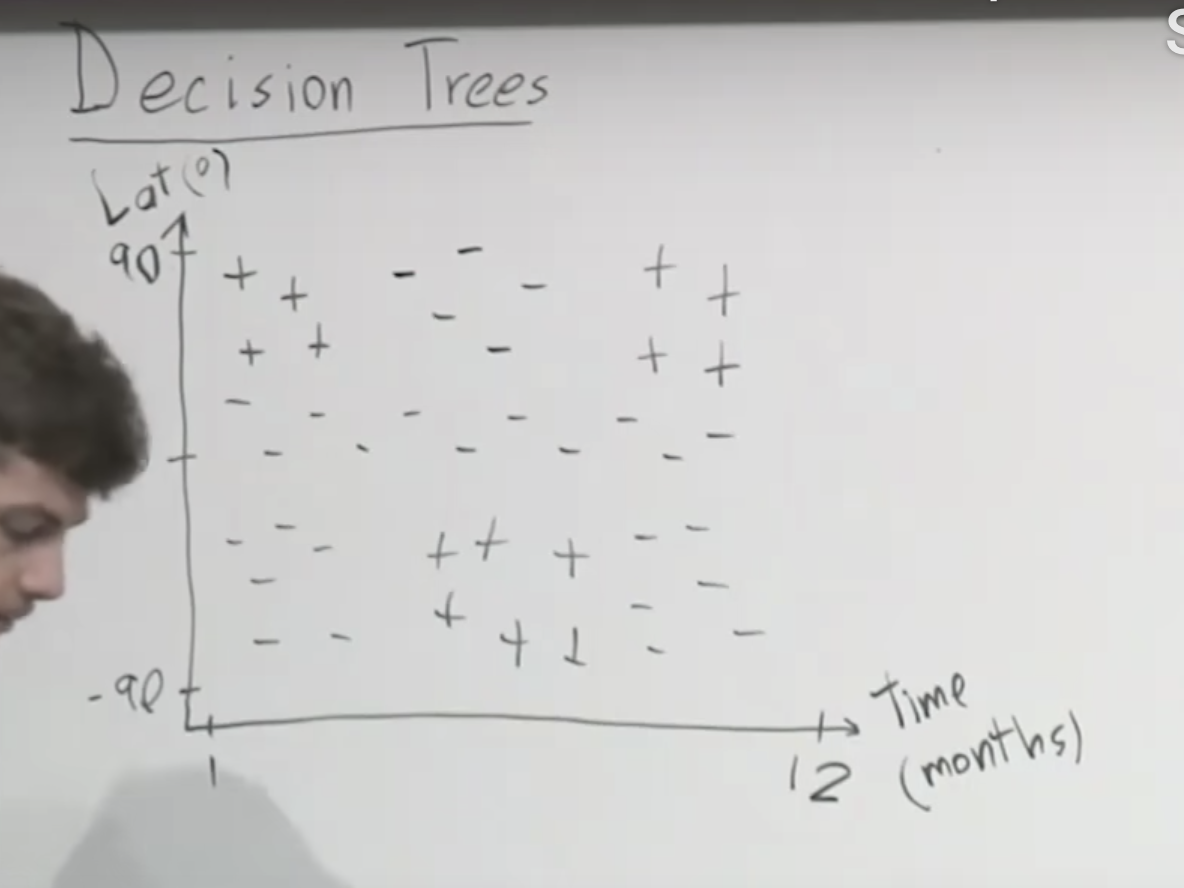 Decision Trees
Lat(°)
90
+ + - - - + +
-
+ + - + +
- - - - - -
- - - - - -
- - - + + + - -
- + - -
- - + + - -
-90
1
12
Time
(months)